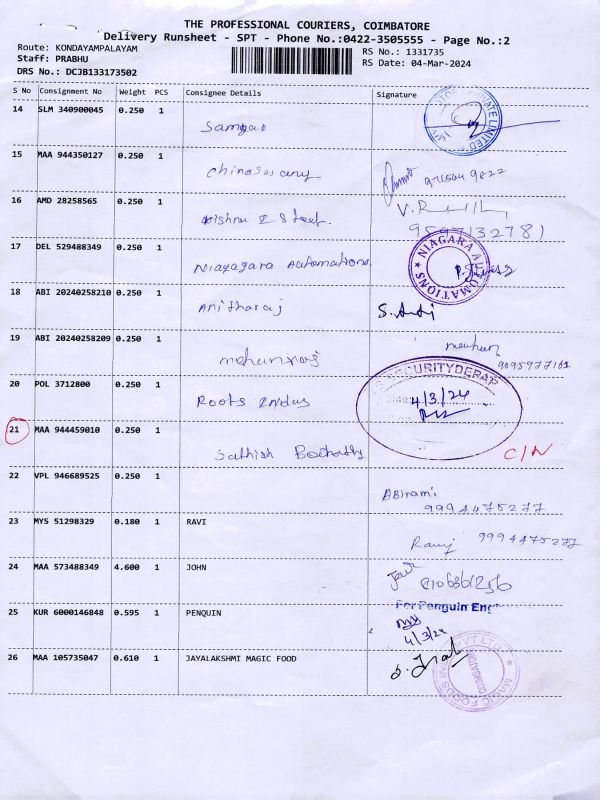 THE PROFESSIONAL COURIERS, COIMBATORE
Delivery Runsheet - SPT - Phone No.:0422-3505555 - Page No.:2
Route: KONDAYAMPALAYAM RS No.: 1331735
Staff: PRABHU RS Date: 04-Mar-2024
DRS No.: DCJB133173502
S No Consignment No Weight PCS Consignee Details Signature
14 SLM 340900045 0.250 1
15 MAA 944350127 0.250 1
16 AMD 28258565 0.250 1 V.R
9597132781
17 DEL 529488349 0.250 1 Niayagara Automations
NIAGARA AUTOMATIONS
18 ABI 20240258210 0.250 1 Anitharaj
19 ABI 20240258209 0.250 1 mohanraj
20 POL 3712800 0.250 1 Roots Indus
4/3/24
21 MAA 944459010 0.250 1 Sathish C/N
22 VPL 946689525 0.250 1 Abirami
9994475277
23 MYS 51298329 0.180 1 RAVI 9994475277
24 MAA 573488349 4.600 1 JOHN
25 KUR 6000146848 0.595 1 PENQUIN For Penguin
4/3/24
26 MAA 105735047 0.610 1 JAYALAKSHMI MAGIC FOOD
MAGIC FOODS